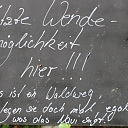 letzte Wende-
möglichkeit
hier!!!
es ist ein Waldweg,
egen se doch mal, egal
was das Navi sagt.